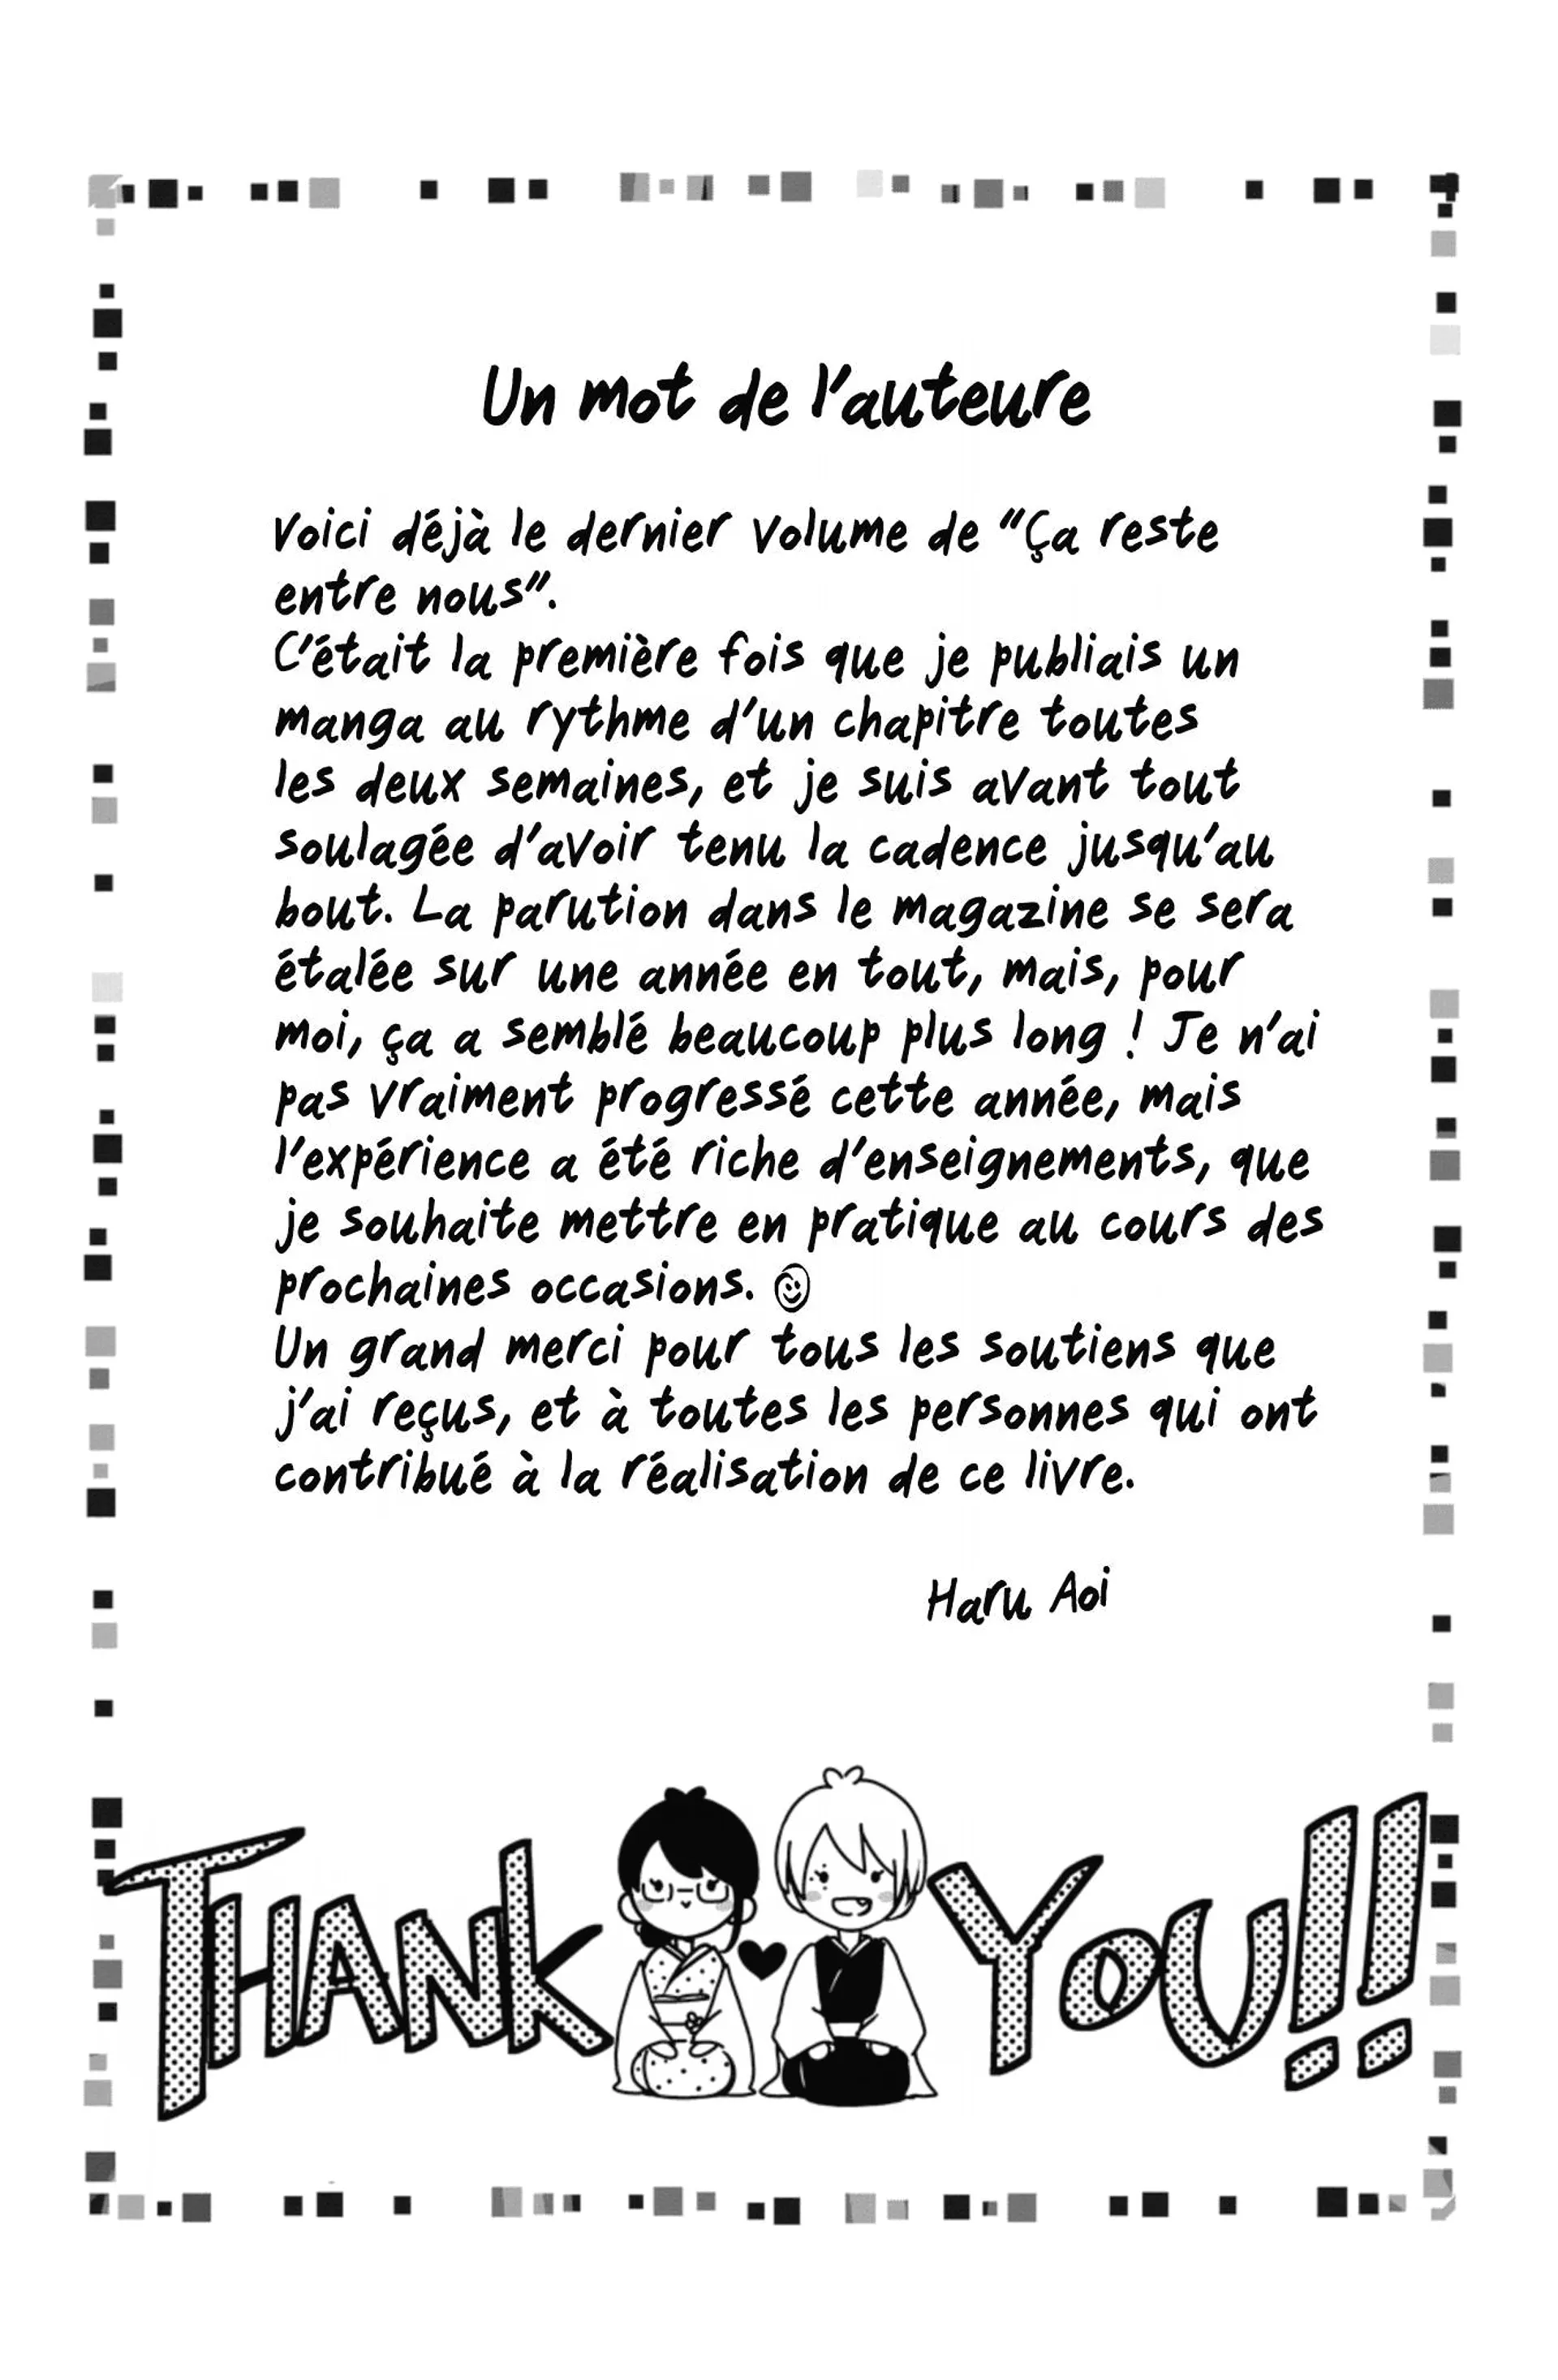 Un mot de l'auteure
Voici déjà le dernier volume de "Ça reste
entre nous".
C'était la première fois que je publiais un
manga au rythme d'un chapitre toutes
les deux semaines, et je suis avant tout
soulagée d'avoir tenu la cadence jusqu'au
bout. La parution dans le magazine se sera
étalée sur une année en tout, mais, pour
moi, ça a semblé beaucoup plus long ! Je n'ai
pas vraiment progressé cette année, mais
l'expérience a été riche d'enseignements, que
je souhaite mettre en pratique au cours des
prochaines occasions. ☺
Un grand merci pour tous les soutiens que
j'ai reçus, et à toutes les personnes qui ont
contribué à la réalisation de ce livre.
Haru Aoi
THANK YOU!!